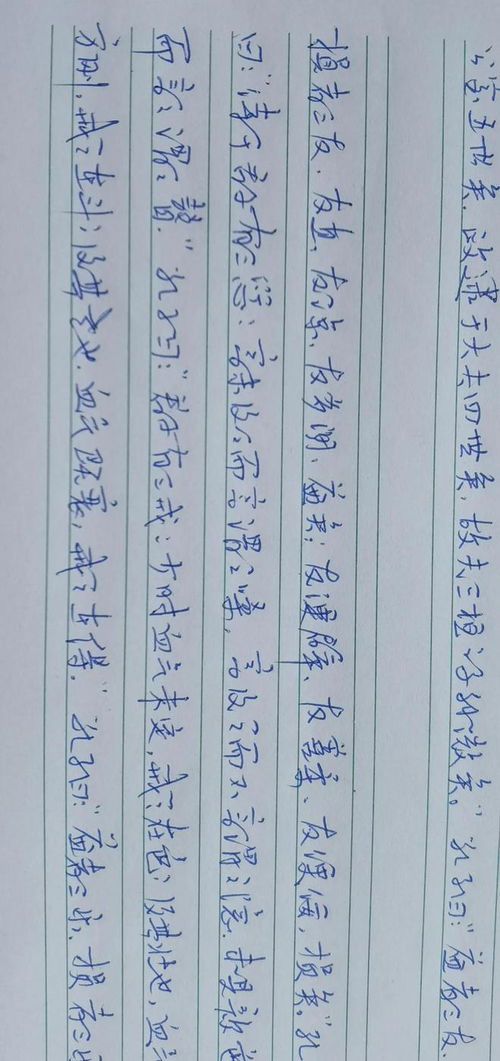 公室五世矣，政逮于大夫四世矣，故夫三桓之子孙微矣。”孔子曰：“益者三友
损者三友。友直、友谅、友多闻，益矣；友便辟、友善柔、友便佞，损矣。”孔
曰：“侍于君子有三愆：言未及之而言谓之躁，言及之而不言谓之隐，未见颜色
而言谓之瞽。”孔子曰：“君子有三戒：少时血气未定，戒之在色；及其壮也，血气
方刚，戒之在斗；及其老也，血气既衰，戒之在得。”孔子曰：“益者三乐，损者三乐